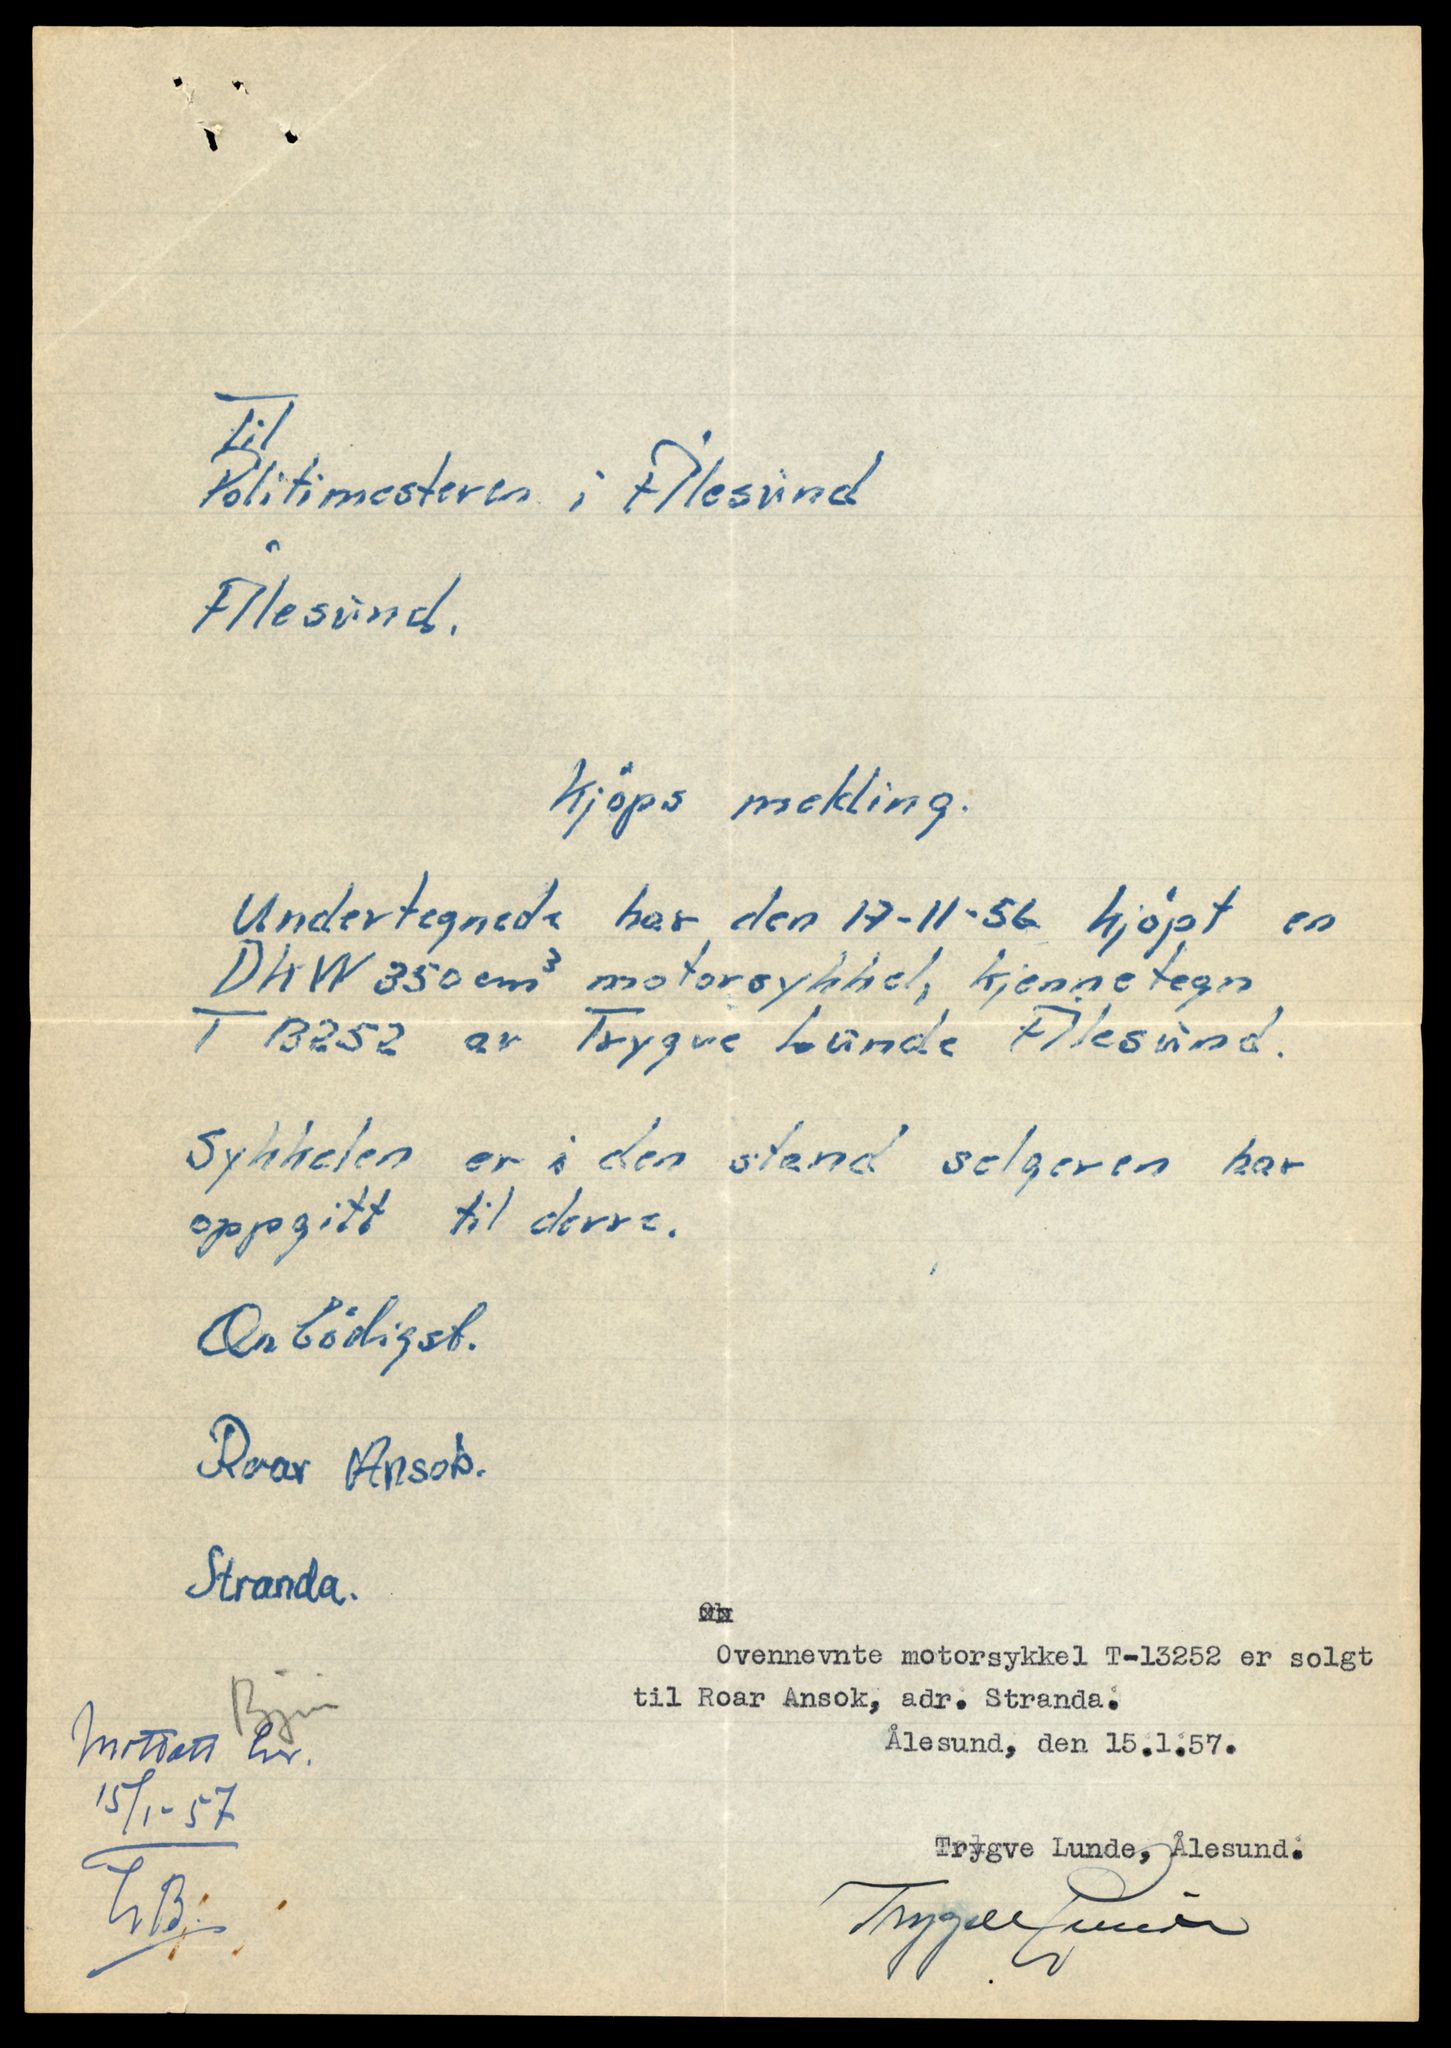 Til
Politimesteren i Ålesund
Ålesund.
Kjöps melding.
Undertegnede har den 17-11-56 kjöpt en
DKW 350 cm³ motorsykkel, kjennetegn
T 13252 av Trygve Lunde Ålesund.
Sykkelen er i den stand selgeren har
oppgitt til derre.
Ærbödigst.
Roar Ansok.
Stranda.
Ovennevnte motorsykkel T-13252 er solgt
til Roar Ansok, adr. Stranda.
Ålesund, den 15.1.57.
Trygve Lunde, Ålesund.
Trygve Lunde
Mottatt
15/1-57